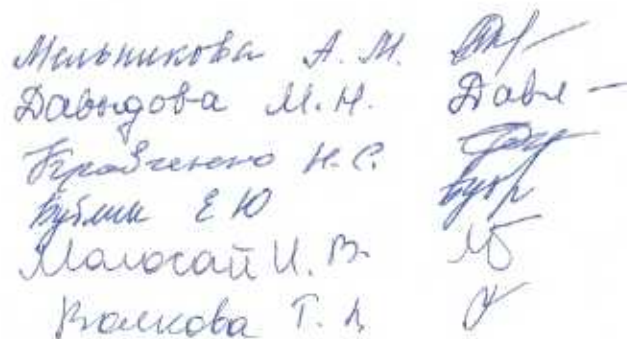 Мельникова А. М.
Давыдова М.Н. Давы
Кравченко Н.С.
Бублик Е Ю
Малосай И. В.
Волкова Т. А